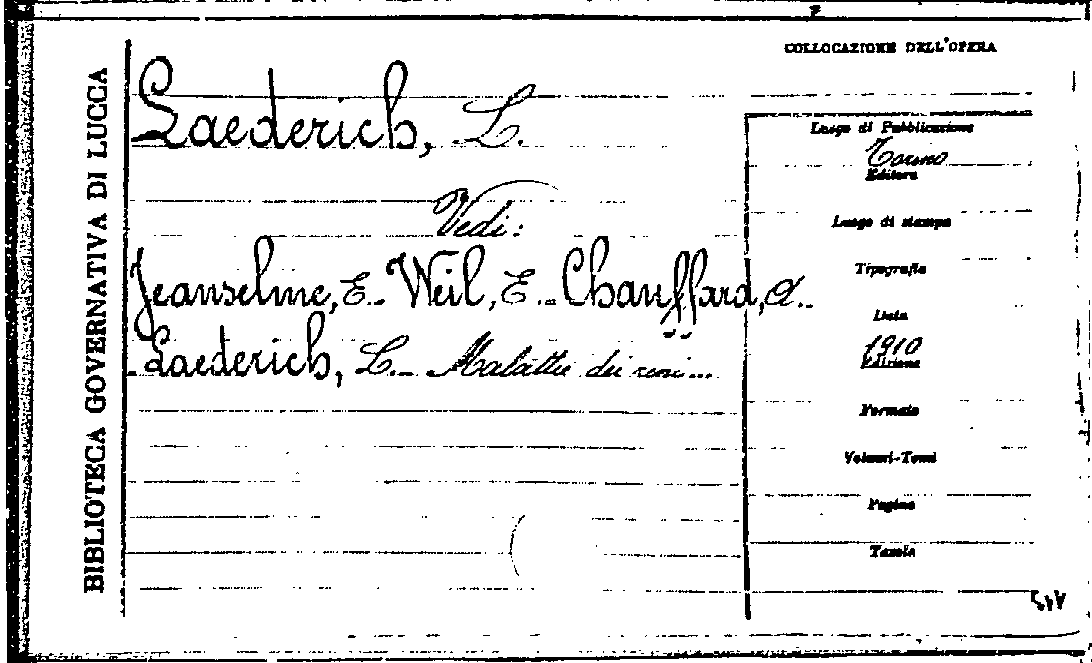 BIBLIOTECA GOVERNATIVA DI LUCCA
COLLOCAZIONE DELL'OPERA
Laederich, L.
Vedi:
Jeanselme, E.- Weil, E.- Chauffard, A.-
Laederich, L.- Malattie dei reni...
Luogo di Pubblicazione
Torino
Editore
Luogo di stampa
Tipografia
Data
1910
Edizione
Formato
Volumi-Tomi
Pagine
Tavole